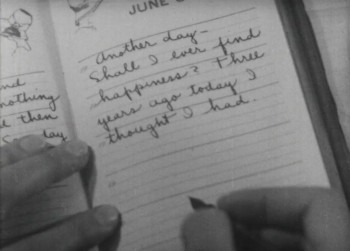 JUNE
Another day-
Shall I ever find
happiness? Three
years ago today I
thought I had.
nd
nothing
then
day